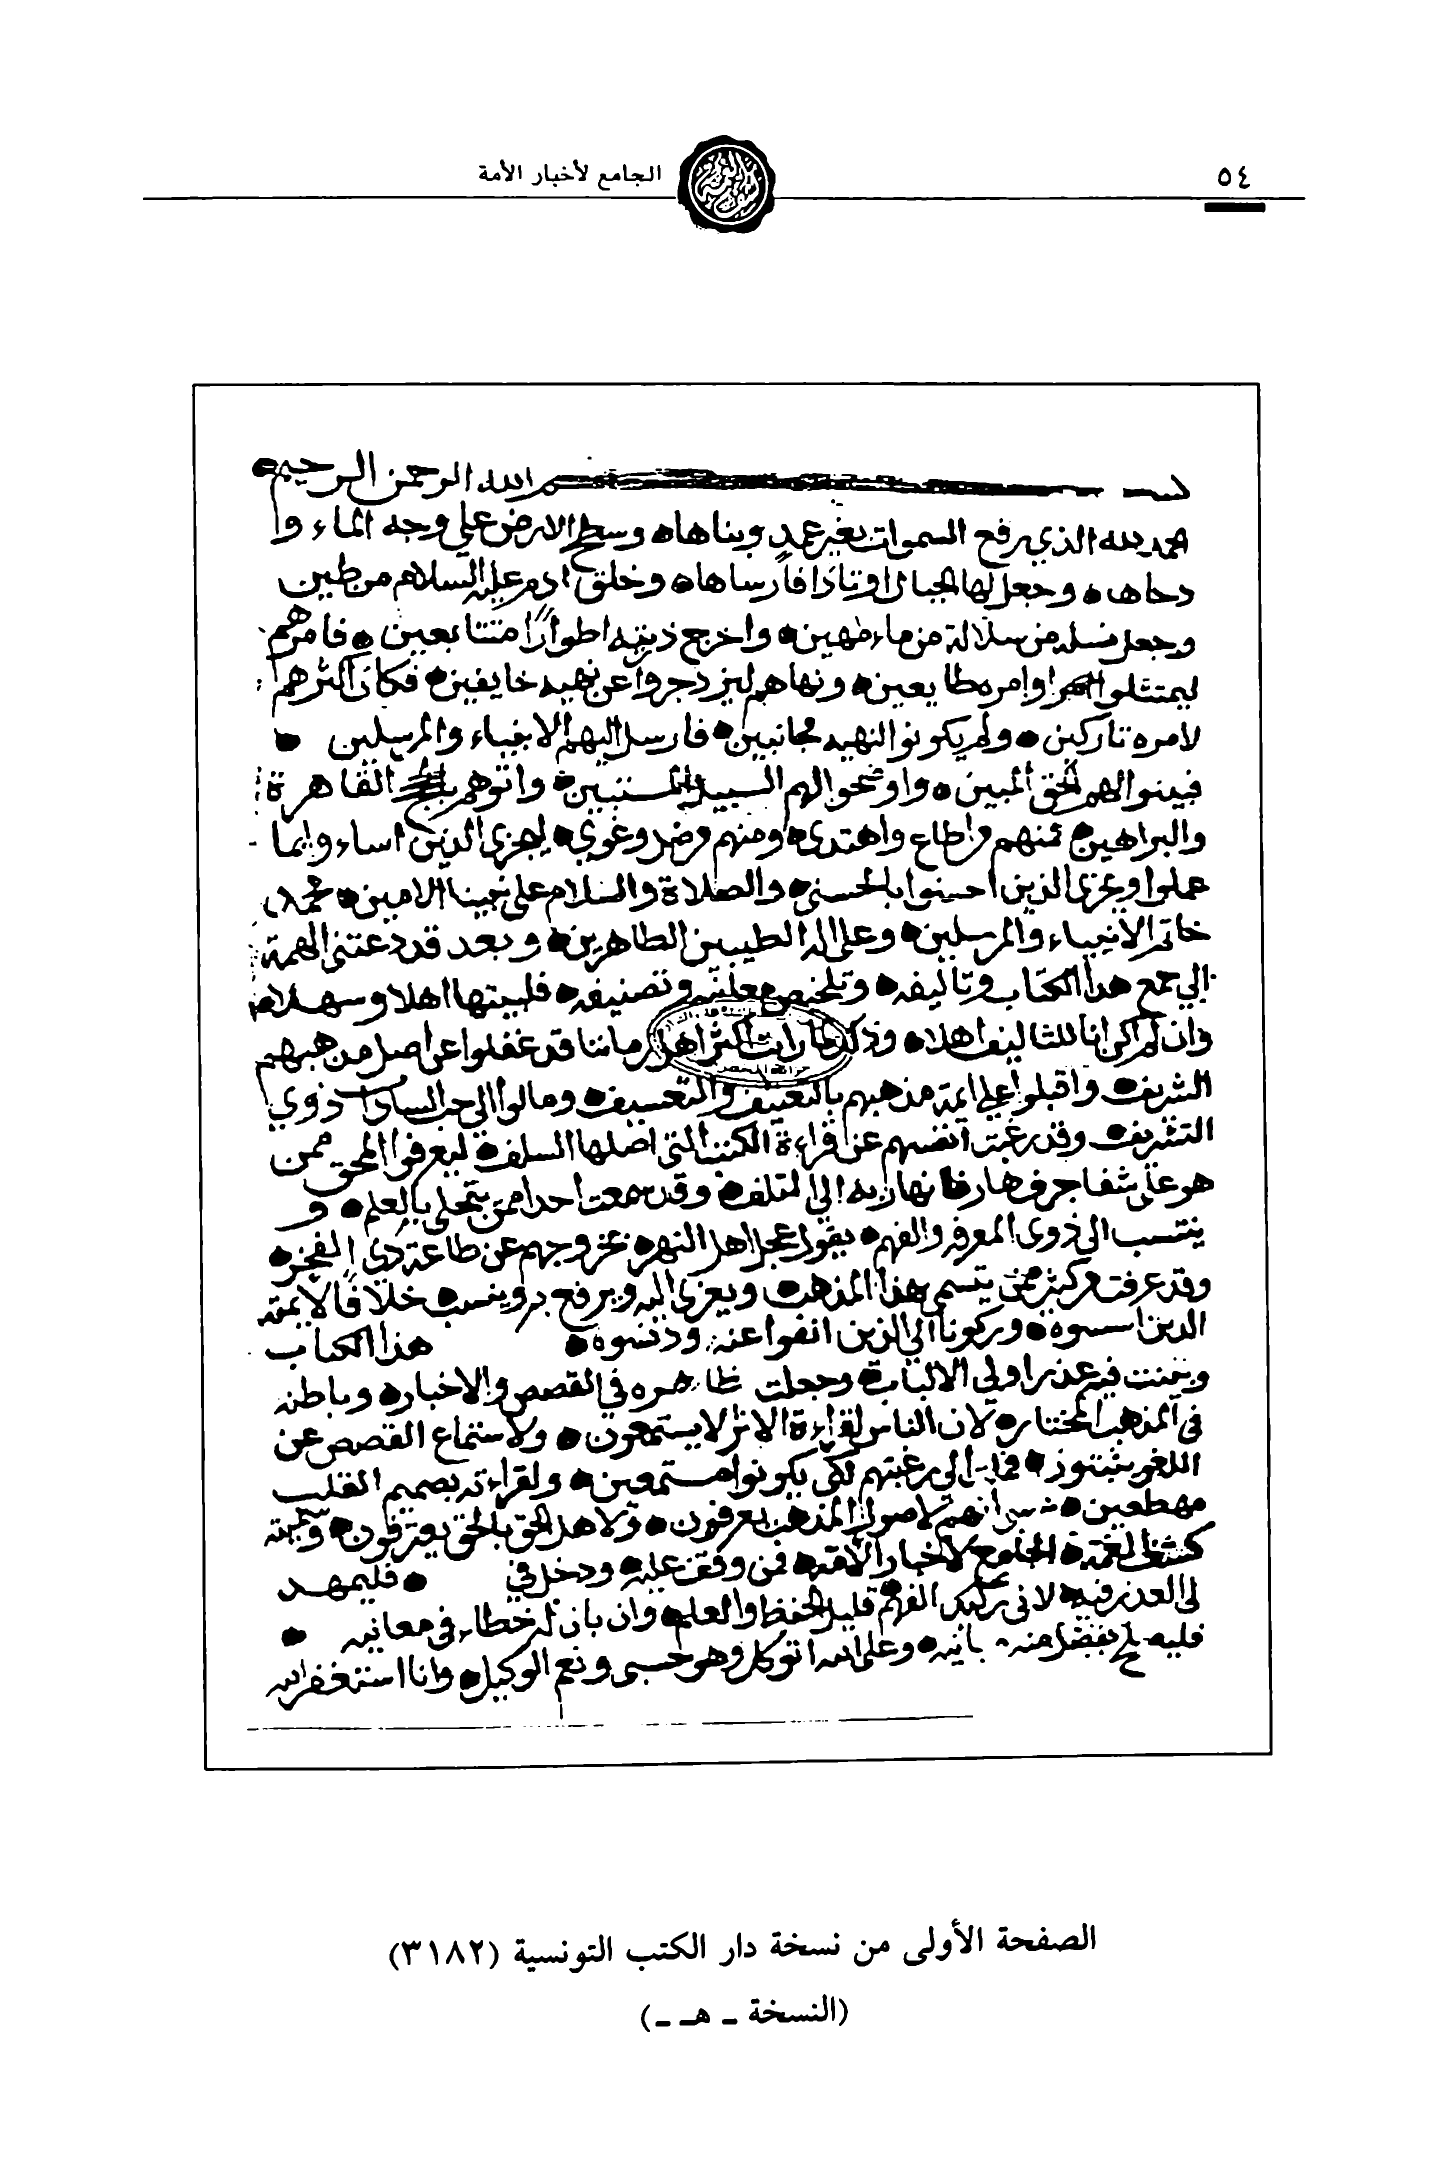 ٥٤
الجامع لأخبار الأمة
بسم الله الرحمن الرحيم
الحمد لله الذي رفع السموات بغير عمد وبناها وسطح الارض على وجه الماء و
دحاها وجعل لها الجبال اوتادا فارساها وخلق ادم عليه السلام من طين
وجعل نسله من سلالة من ماء مهين واخرج ذريته اطوارًا متتابعين فامرهم
ليمتثلوا اوامره طايعين ونهاهم ليزدجروا عن نهيه خايفين فكان اكثرهم
لامره تاركين ولم يكونوا لنهيه مجانبين فارسل اليهم الانبياء والمرسلين
فبينوا لهم الحق المبين واوضحوا لهم السبيل المستبين واتوهم القاهرة
والبراهين فمنهم من اطاع واهتدى ومنهم من ضل وغوى ليجزي الذين اساءوا بما
عملوا ويجزى الذين احسنوا بالحسنى والصلاة والسلام على نبينا الامين محمد
خاتم الانبياء والمرسلين وعلى اله الطيبين الطاهرين وبعد قد دعتني الهمة
الي جمع هذا الكتاب وتاليفه وتلخيص معانيه وتصنيفه فلبيتها اهلا وسهلا
وان لم اكن انا للتاليف اهلا وذلك لما رايت اكثر اهل زماننا قد غفلوا عن اصل مذهبهم
الشريف واقبلوا على ائمة مذهبهم بالتعنيف والتعسيف ومالوا الى حب السادات ذوي
التشريف وقد رغبت انفسهم عن قراءة الكتب التي اصلها السلف ليعرفوا المحق ممن
هو على شفا جرف هار فانهار به الي التلف وقد سمعت احدا ممن يتحلى بالعلم و
ينتسب الى ذوي المعرفة والفهم يقول عجل اهل النهر بخروجهم عن طاعة ذي الفخر
وقد عرفت من كثير ممن يتسمى بهذا المذهب ويعزى اليه ويرفع به وينسب خلافًا لايمته
الذين اسسوه وركونا الي الذين انفوا عنه ودنسوه هذا الكتاب
وبينت فيه عذر اولى الالباب وجعلت ظاهره في القصص والاخبار وباطنه
في المذهب المختار لان الناس لقراءة الاثر لا يستمعون ولاستماع القصص عن
اللغو يثبتون الي رغبتهم لكي يكونوا مستمعين ولقراءته بصميم القلب
مهطعين انهم لاصول المذهب يعرفون ولاهل الحق بالحق يعترفون وسميته
كشف الغمة الجامع لاخبار الامة فمن وقف عليه ودخل في فليمهد
لي العذر فيه لانى ركيك الفهم قليل الحفظ والعلم وان بان له خطاء في معانيه
فليصلح بفضل منه وعلى الله اتوكل وهو حسبي ونعم الوكيل وانا استغفر الله
الصفحة الأولى من نسخة دار الكتب التونسية (٣١٨٢)
(النسخة ـ هـ ـ)